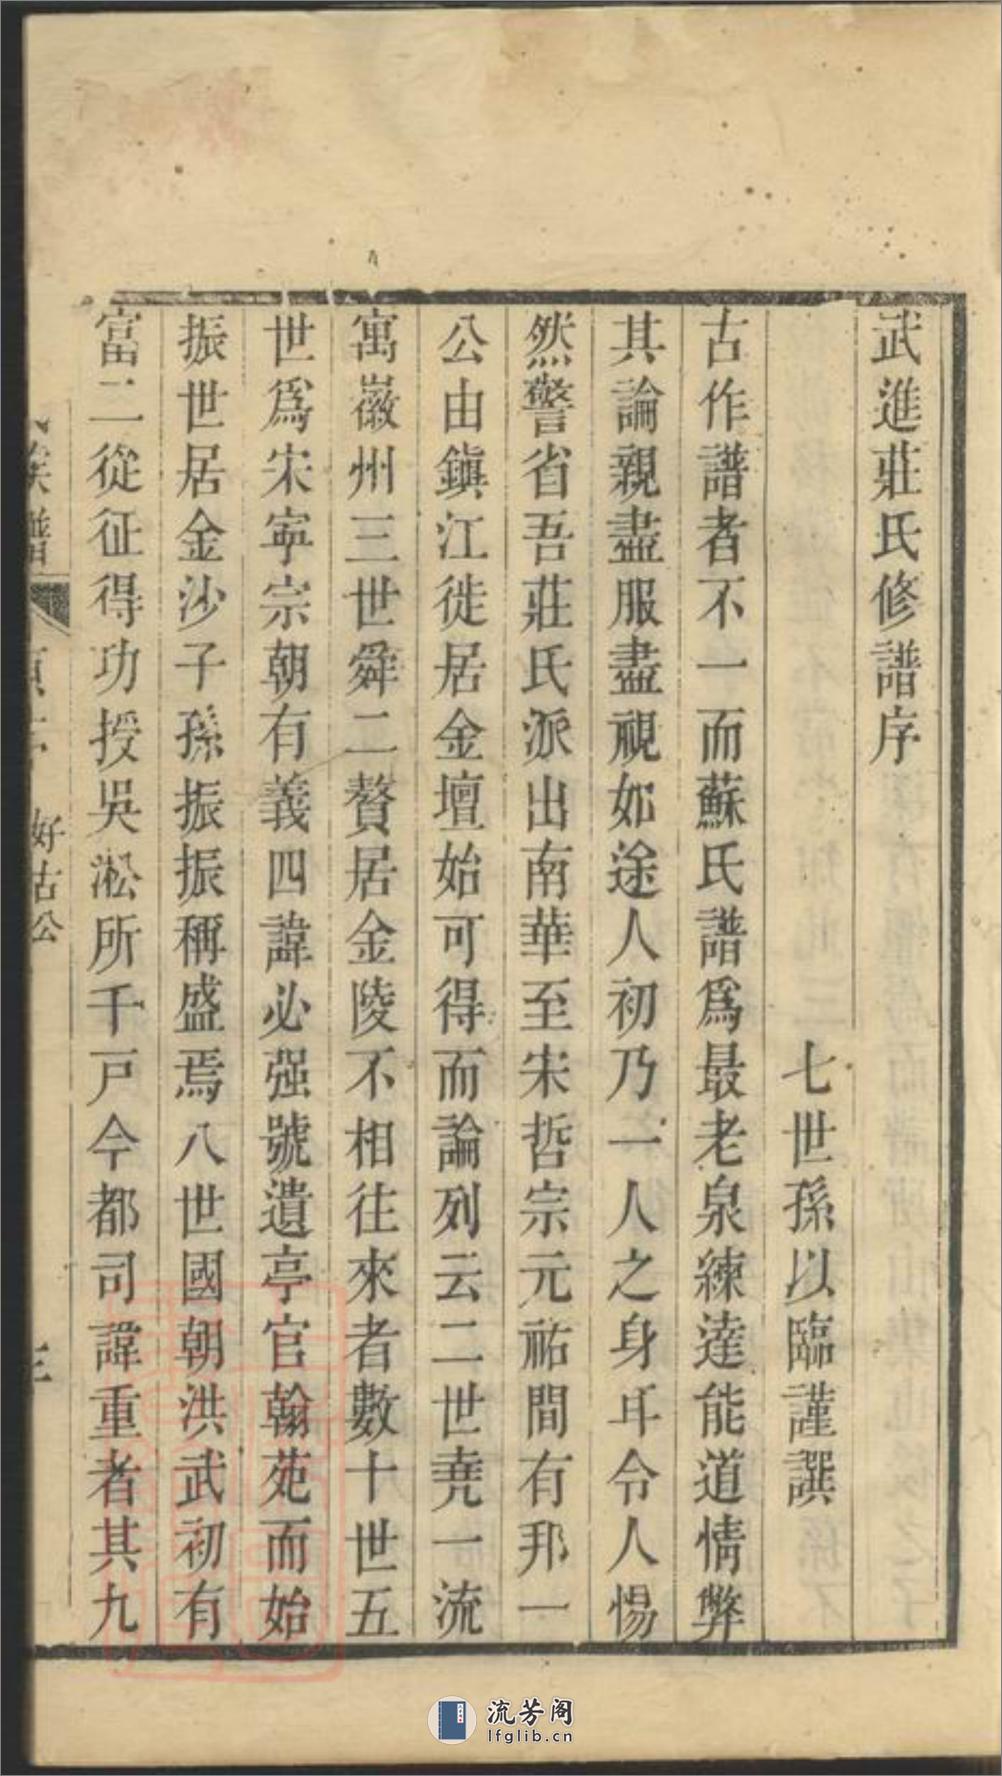 武進莊氏修譜序
七世孫以臨謹譔
古作譜者不一而蘇氏譜爲最老泉練達能道情弊
其論親盡服盡視如途人初乃一人之身耳令人惕
然警省吾莊氏派出南華至宋哲宗元祐間有邦一
公由鎭江徙居金壇始可得而論列云二世堯一流
寓徽州三世舜二贅居金陵不相往來者數十世五
世爲宋寧宗朝有義四諱必强號遺亭官翰苑而始
振世居金沙子孫振振稱盛焉八世國朝洪武初有
富二從征得功授吳淞所千戸今都司諱重者其九
族譜
好古公
流芳阁
lfglib.cn